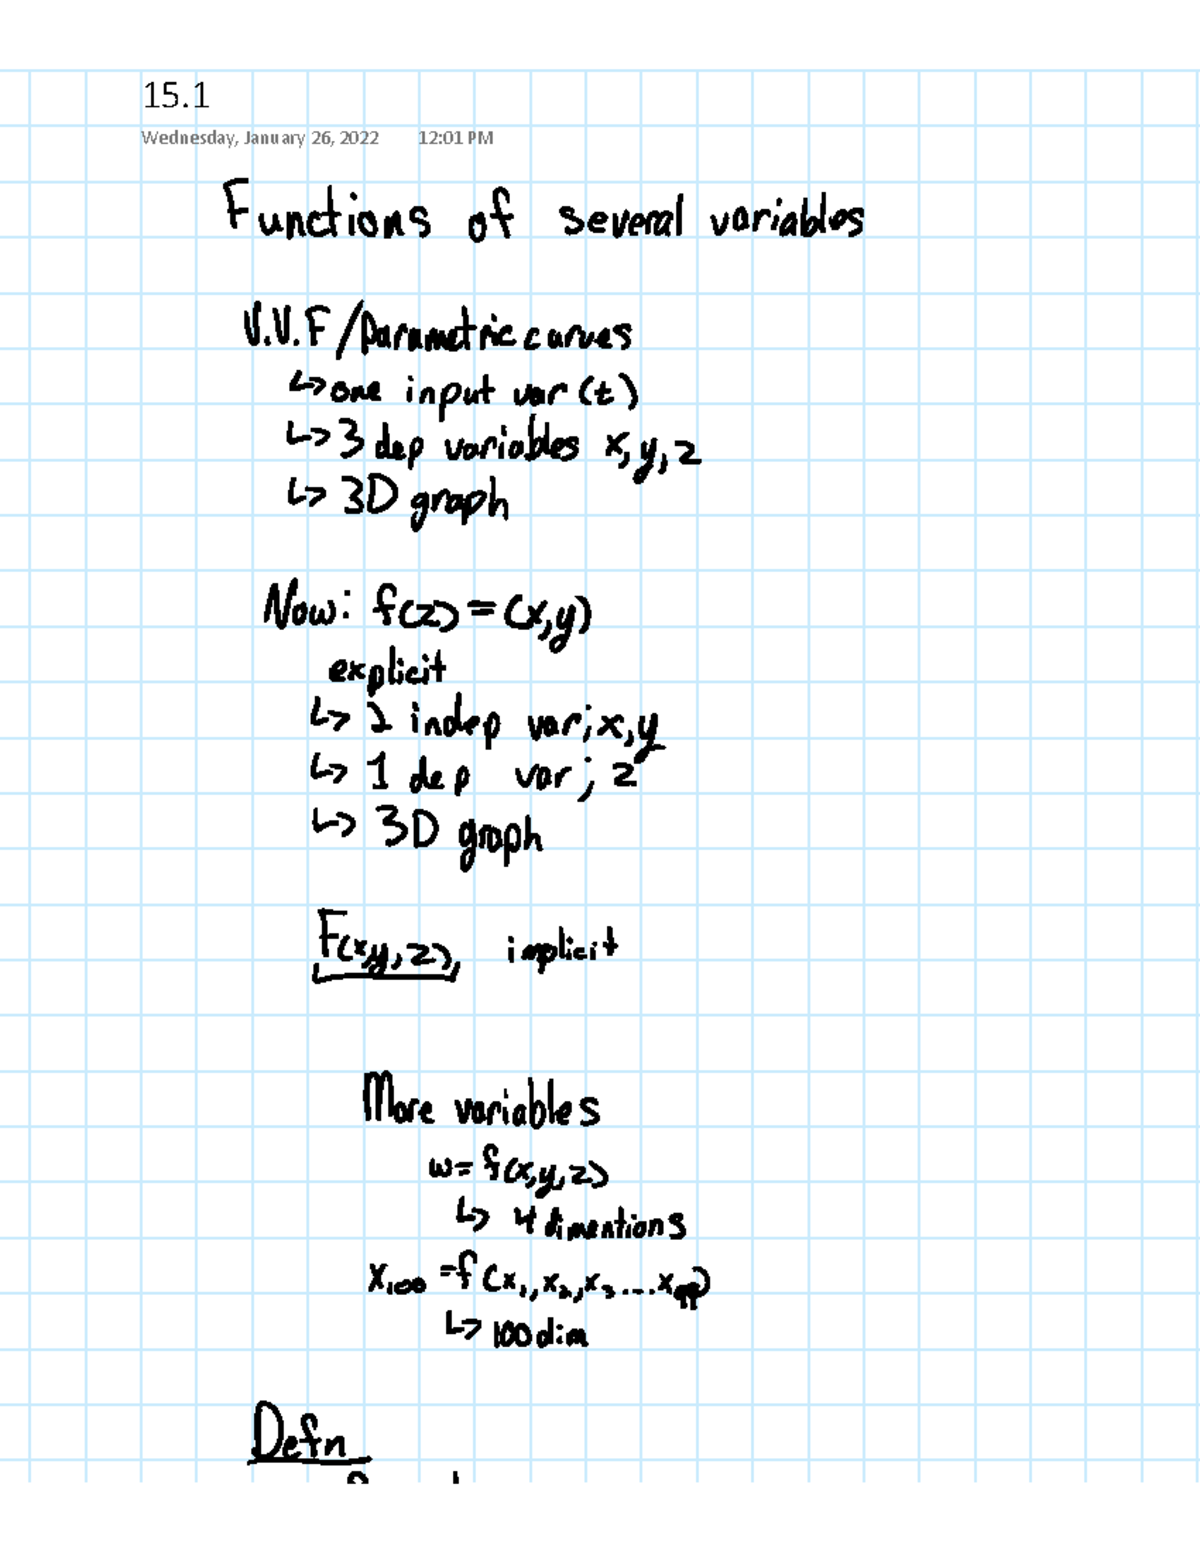 15.1
Wednesday, January 26, 2022 12:01 PM
Functions of several variables
V.V.F/parametric curves
↳ one input var (t)
↳ 3 dep variables x, y, z
↳ 3D graph
Now: f(z) = (x,y)
explicit
↳ 2 indep var; x,y
↳ 1 dep var; z
↳ 3D graph
F(x,y,z), implicit
More variables
w= f(x,y,z)
↳ 4 dimentions
x₁₀₀ =f(x₁,x₂,x₃....x₉₉)
↳ 100 dim
Defn